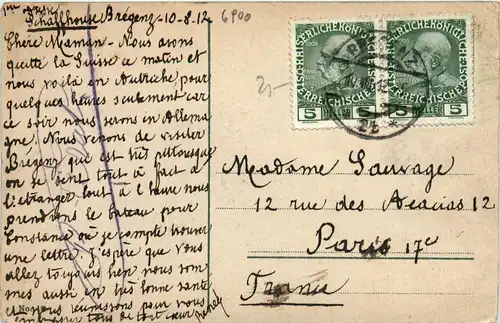 Schaffhouse Brégenz - 10-8-12
6900
Chère Maman - Nous avons
quitté la Suisse ce matin et
nous voilà en Autriche pour
quelques heures seulement car
ce soir nous serons en Allema
gne. Nous venons de visiter
Brégenz que est très pittoresque
on se sent tout à fait à
l'étranger. tout à l'heure nous
prendrons le bateau pour
Constance où je compte trouver
une lettre. J'espère que vous
allez toujours bien nous som
mes aussi en très bonne santé
et nous réunissons pour vous
embrasser tous de tout cœur
KAISERLICHE KÖNIGLICHE
ÖSTERREICHISCHE POST
5 5
KAISERLICHE KÖNIGLICHE
ÖSTERREICHISCHE POST
5 5
Madame Sauvage
12 rue des Acacias 12
Paris 17e
France